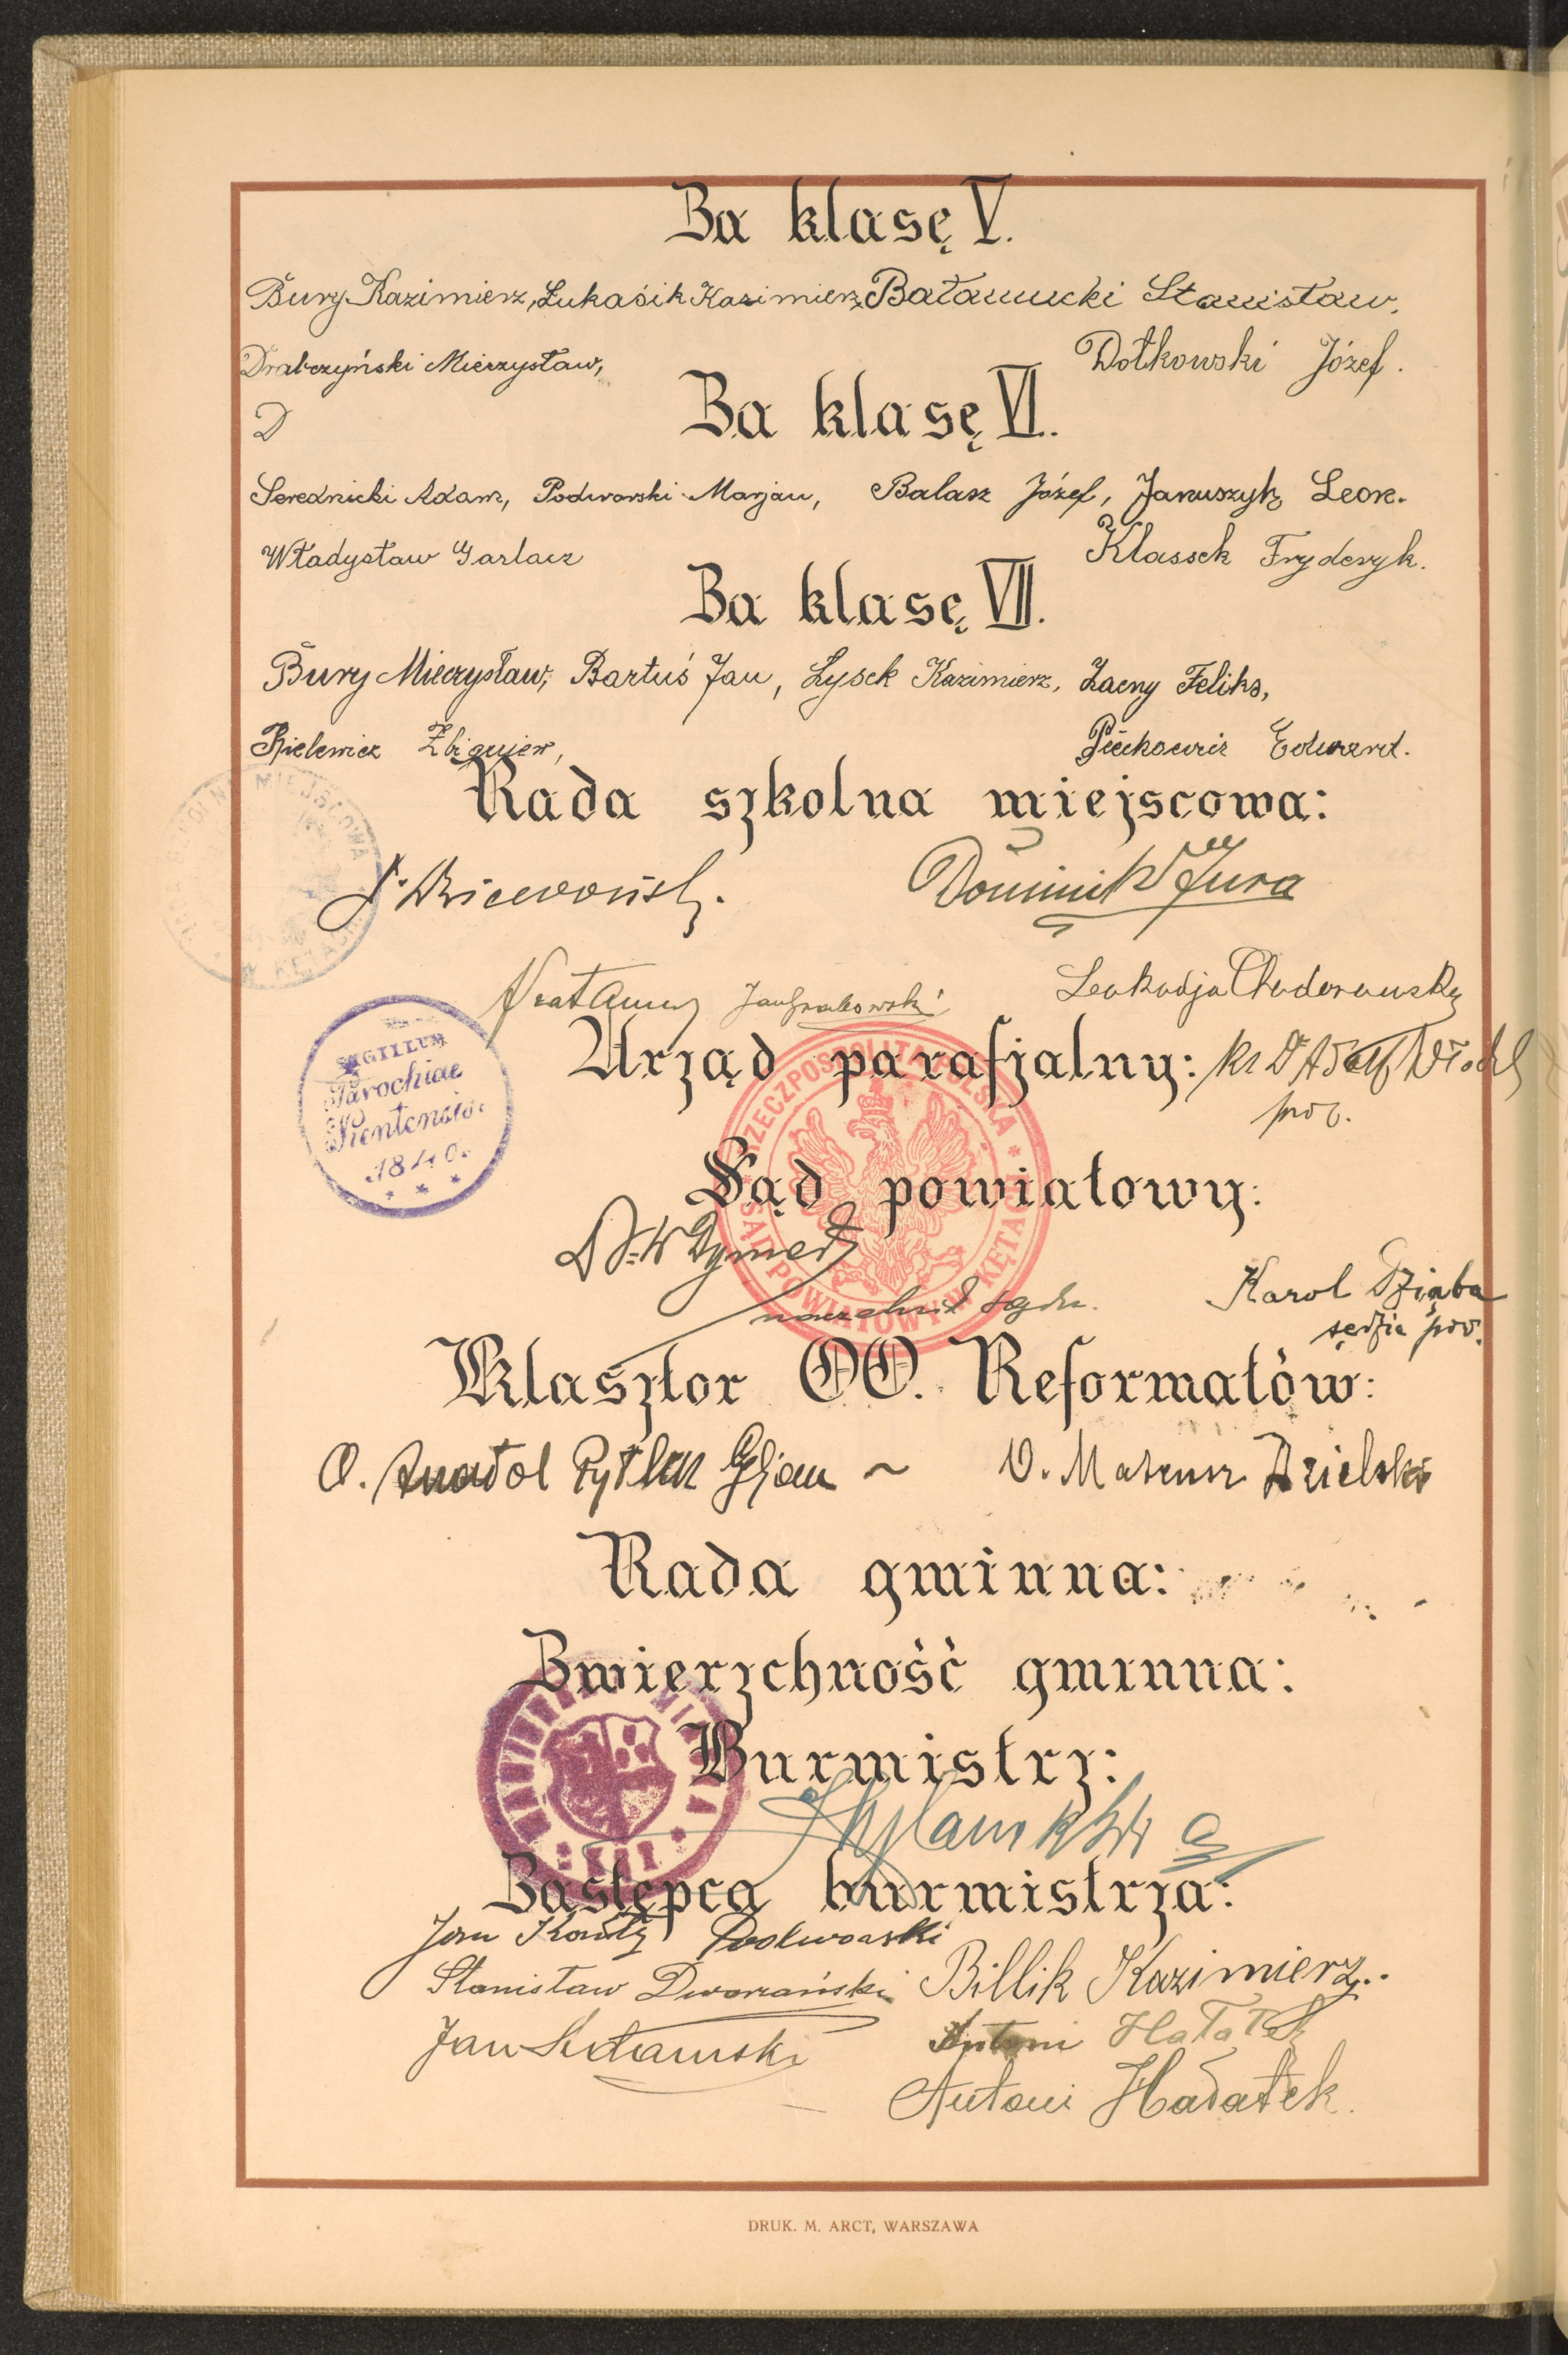 Za klasę V.
Bury Kazimierz, Łukasik Kazimierz, Bałamucki Stanisław.
Drabczyński Mieczysław, Dołkowski Józef.
D
Za klasę VI.
Serednicki Adam, Podworski Marjan, Balasz Józef, Januszyk Leon.
Władysław Garlacz Klassek Fryderyk.
Za klasę VII.
Bury Mieczysław, Bartuś Jan, Łysek Kazimierz, Zacny Feliks,
Zbigniew, Edward.
Rada szkolna miejscowa:
Dominik Jura
Jan Grabowski Leokadja
Urząd parafjalny:
SIGILLUM
Parochiae
Kentensis
1840.
RZECZPOSPOLITA POLSKA
Sąd powiatowy:
SĄD POWIATOWY W KĘTACH
naczelnik sądu. Karol Dziąba
sędzia pow.
Klasztor OO. Reformatów:
O. Anatol Pytlik O. Mateusz Dzielski
Rada gminna:
Zwierzchność gminna:
Burmistrz:
Zastępca burmistrza:
Jan Kanty Podworski
Stanisław Dworzański Billik Kazimierz.
Jan Antoni Hałatek
Antoni Hałatek.
DRUK. M. ARCT, WARSZAWA